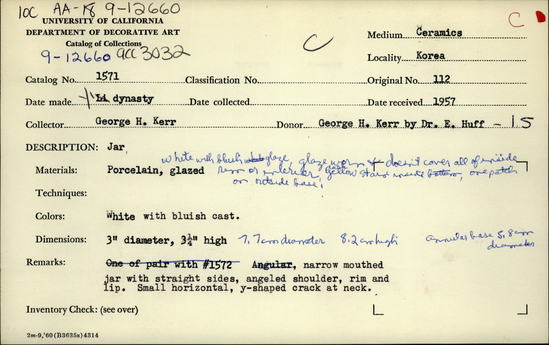 10C AA-18 9-12660
C
UNIVERSITY OF CALIFORNIA
DEPARTMENT OF DECORATIVE ART
Catalog of Collections
9-12660 acc 3032
C
Medium Ceramics
Locality Korea
Catalog No. 1571 Classification No. Original No. 112
Date made Li dynasty Date collected Date received 1957
Collector George H. Kerr Donor George H. Kerr by Dr. E. Huff - 15
DESCRIPTION: Jar
white with bluish glaze, glaze worn & doesn't cover all of inside
Materials: Porcelain, glazed rim or interior, yellow stains inside bottom, one patch
on outside base.
Techniques:
Colors: White with bluish cast.
Dimensions: 3" diameter, 3¼" high 7.7 cm diameter 8.2 cm high annular base 5.8 cm
diameter
Remarks: One of pair with #1572 Angular, narrow mouthed
jar with straight sides, angeled shoulder, rim and
lip. Small horizontal, y-shaped crack at neck.
Inventory Check: (see over)
2m-9,'60 (B3635s) 4314